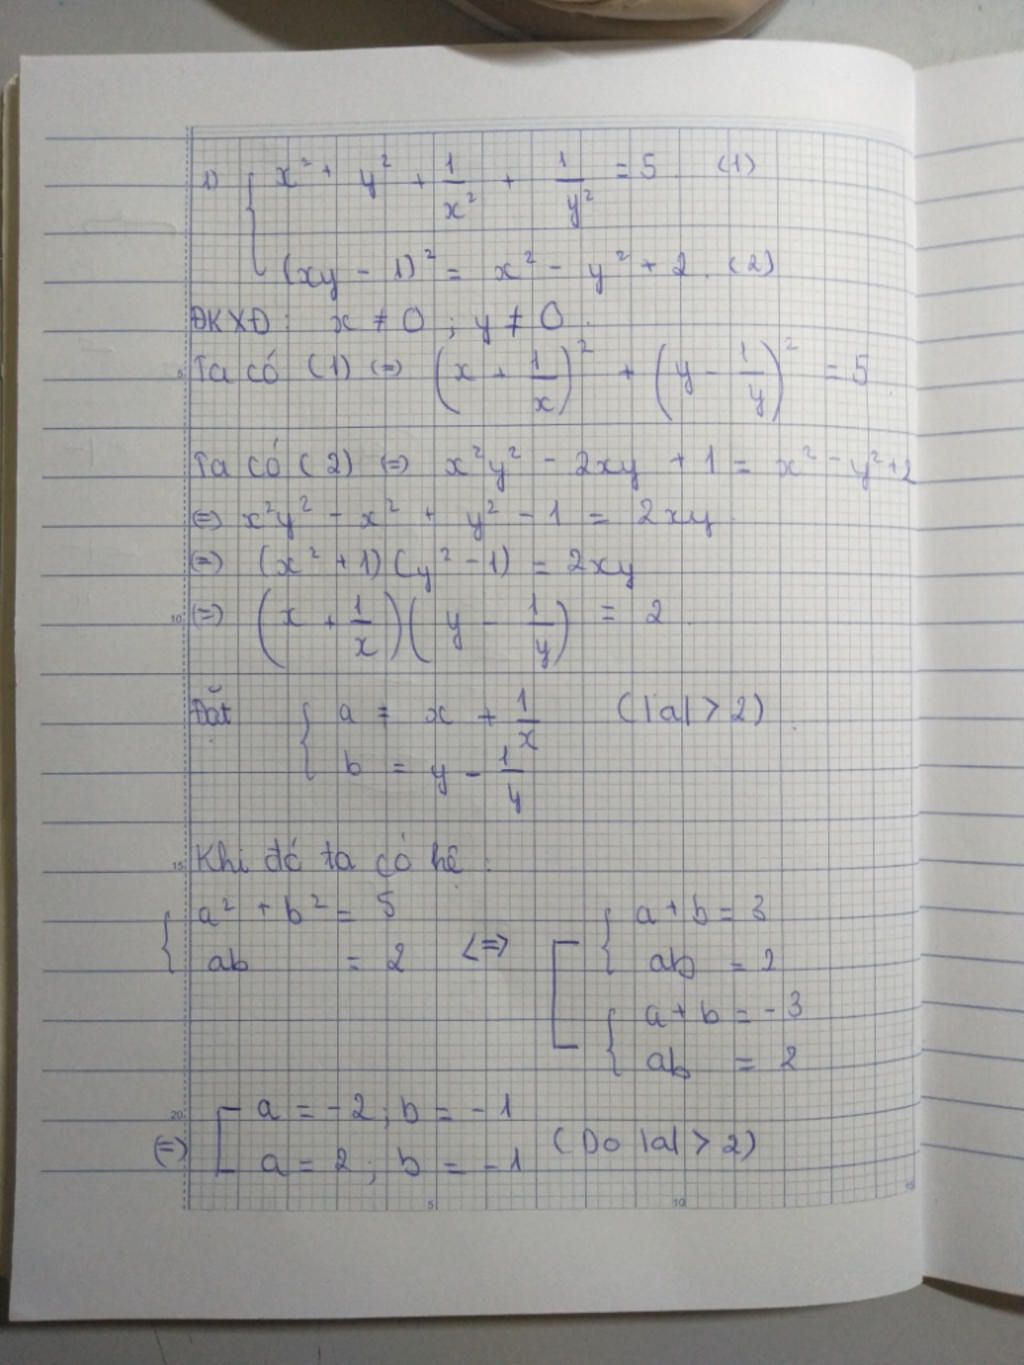 1) { x² + y² + 1/x² + 1/y² = 5 (1)
(xy - 1)² = x² - y² + 2. (2)
ĐKXĐ: x ≠ 0 ; y ≠ 0.
Ta có (1) (=) (x + 1/x)² + (y - 1/y)² = 5
Ta có (2) (=) x²y² - 2xy + 1 = x² - y² + 2
(=) x²y² - x² + y² - 1 = 2xy.
(=) (x² + 1)(y² - 1) = 2xy
(=) (x + 1/x)(y - 1/y) = 2.
Đặt { a = x + 1/x (|a| > 2).
b = y - 1/y
Khi đó ta có hệ:
{ a² + b² = 5
ab = 2
<=> [ { a + b = 3
ab = 2
{ a + b = -3
ab = 2
(=) [ a = -2; b = -1
a = 2; b = -1
(Do |a| > 2)
5
10
15
20
5
10
15